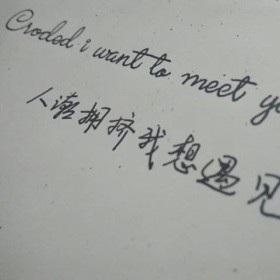 Croded i want to meet yo
人潮拥挤我想遇见